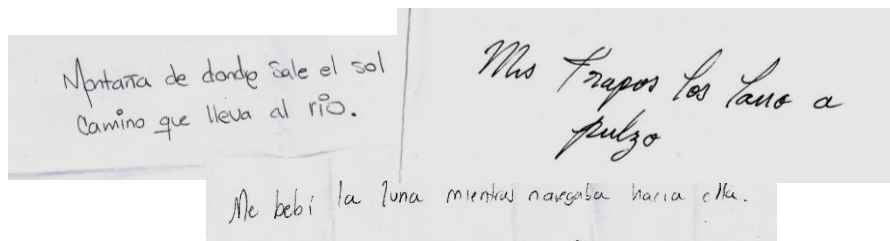 Montaña de donde sale el sol
Camino que lleva al río.
Mis Trapos los lavo a
pulzo
Me bebí la luna mientras navegaba hacia ella.